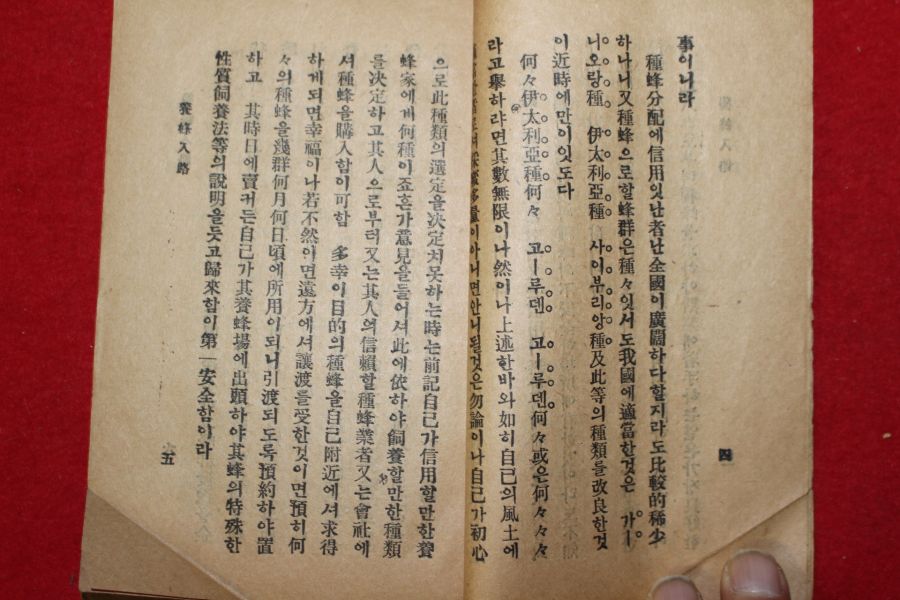 事이니라
種蜂分配에信用잇난者난全國이廣闊하다할지라도比較的稀少
하나니又種蜂으로할蜂群은種々잇서도我國에適當한것은 가ー
니오랑種 伊太利亞種 사이부리앙種及此等의種類를改良한것
이近時에만이잇도다
何々伊太利亞種何々 고ー루덴 고ー루덴何々或은何々々々
라고擧하랴면其數無限이나然이나上述한바와如히自己의風土에
이아니면안니될것은勿論이나自己가初心
四
으로此種類의選定을决定치못하는時는前記自己가信用할만한養
蜂家에게何種이죠흔가意見을들어셔此에依하야飼養할만한種類
를决定하고其人으로부터又는其人의信賴할種蜂業者又는會社에
셔種蜂을購入함이可함 多幸이目的의種蜂을自己附近에셔求得
하게되면幸福이나若不然이면遠方에셔讓渡를受한것이면預히何
々의種蜂을幾群何月何日頃에所用이되니引渡되도록預約하야置
하고 其時日에賣커든自己가其養蜂場에出頭하야其蜂의特殊한
性質飼養法等의說明을듯고歸來함이第一安全함이라
養蜂入路
五